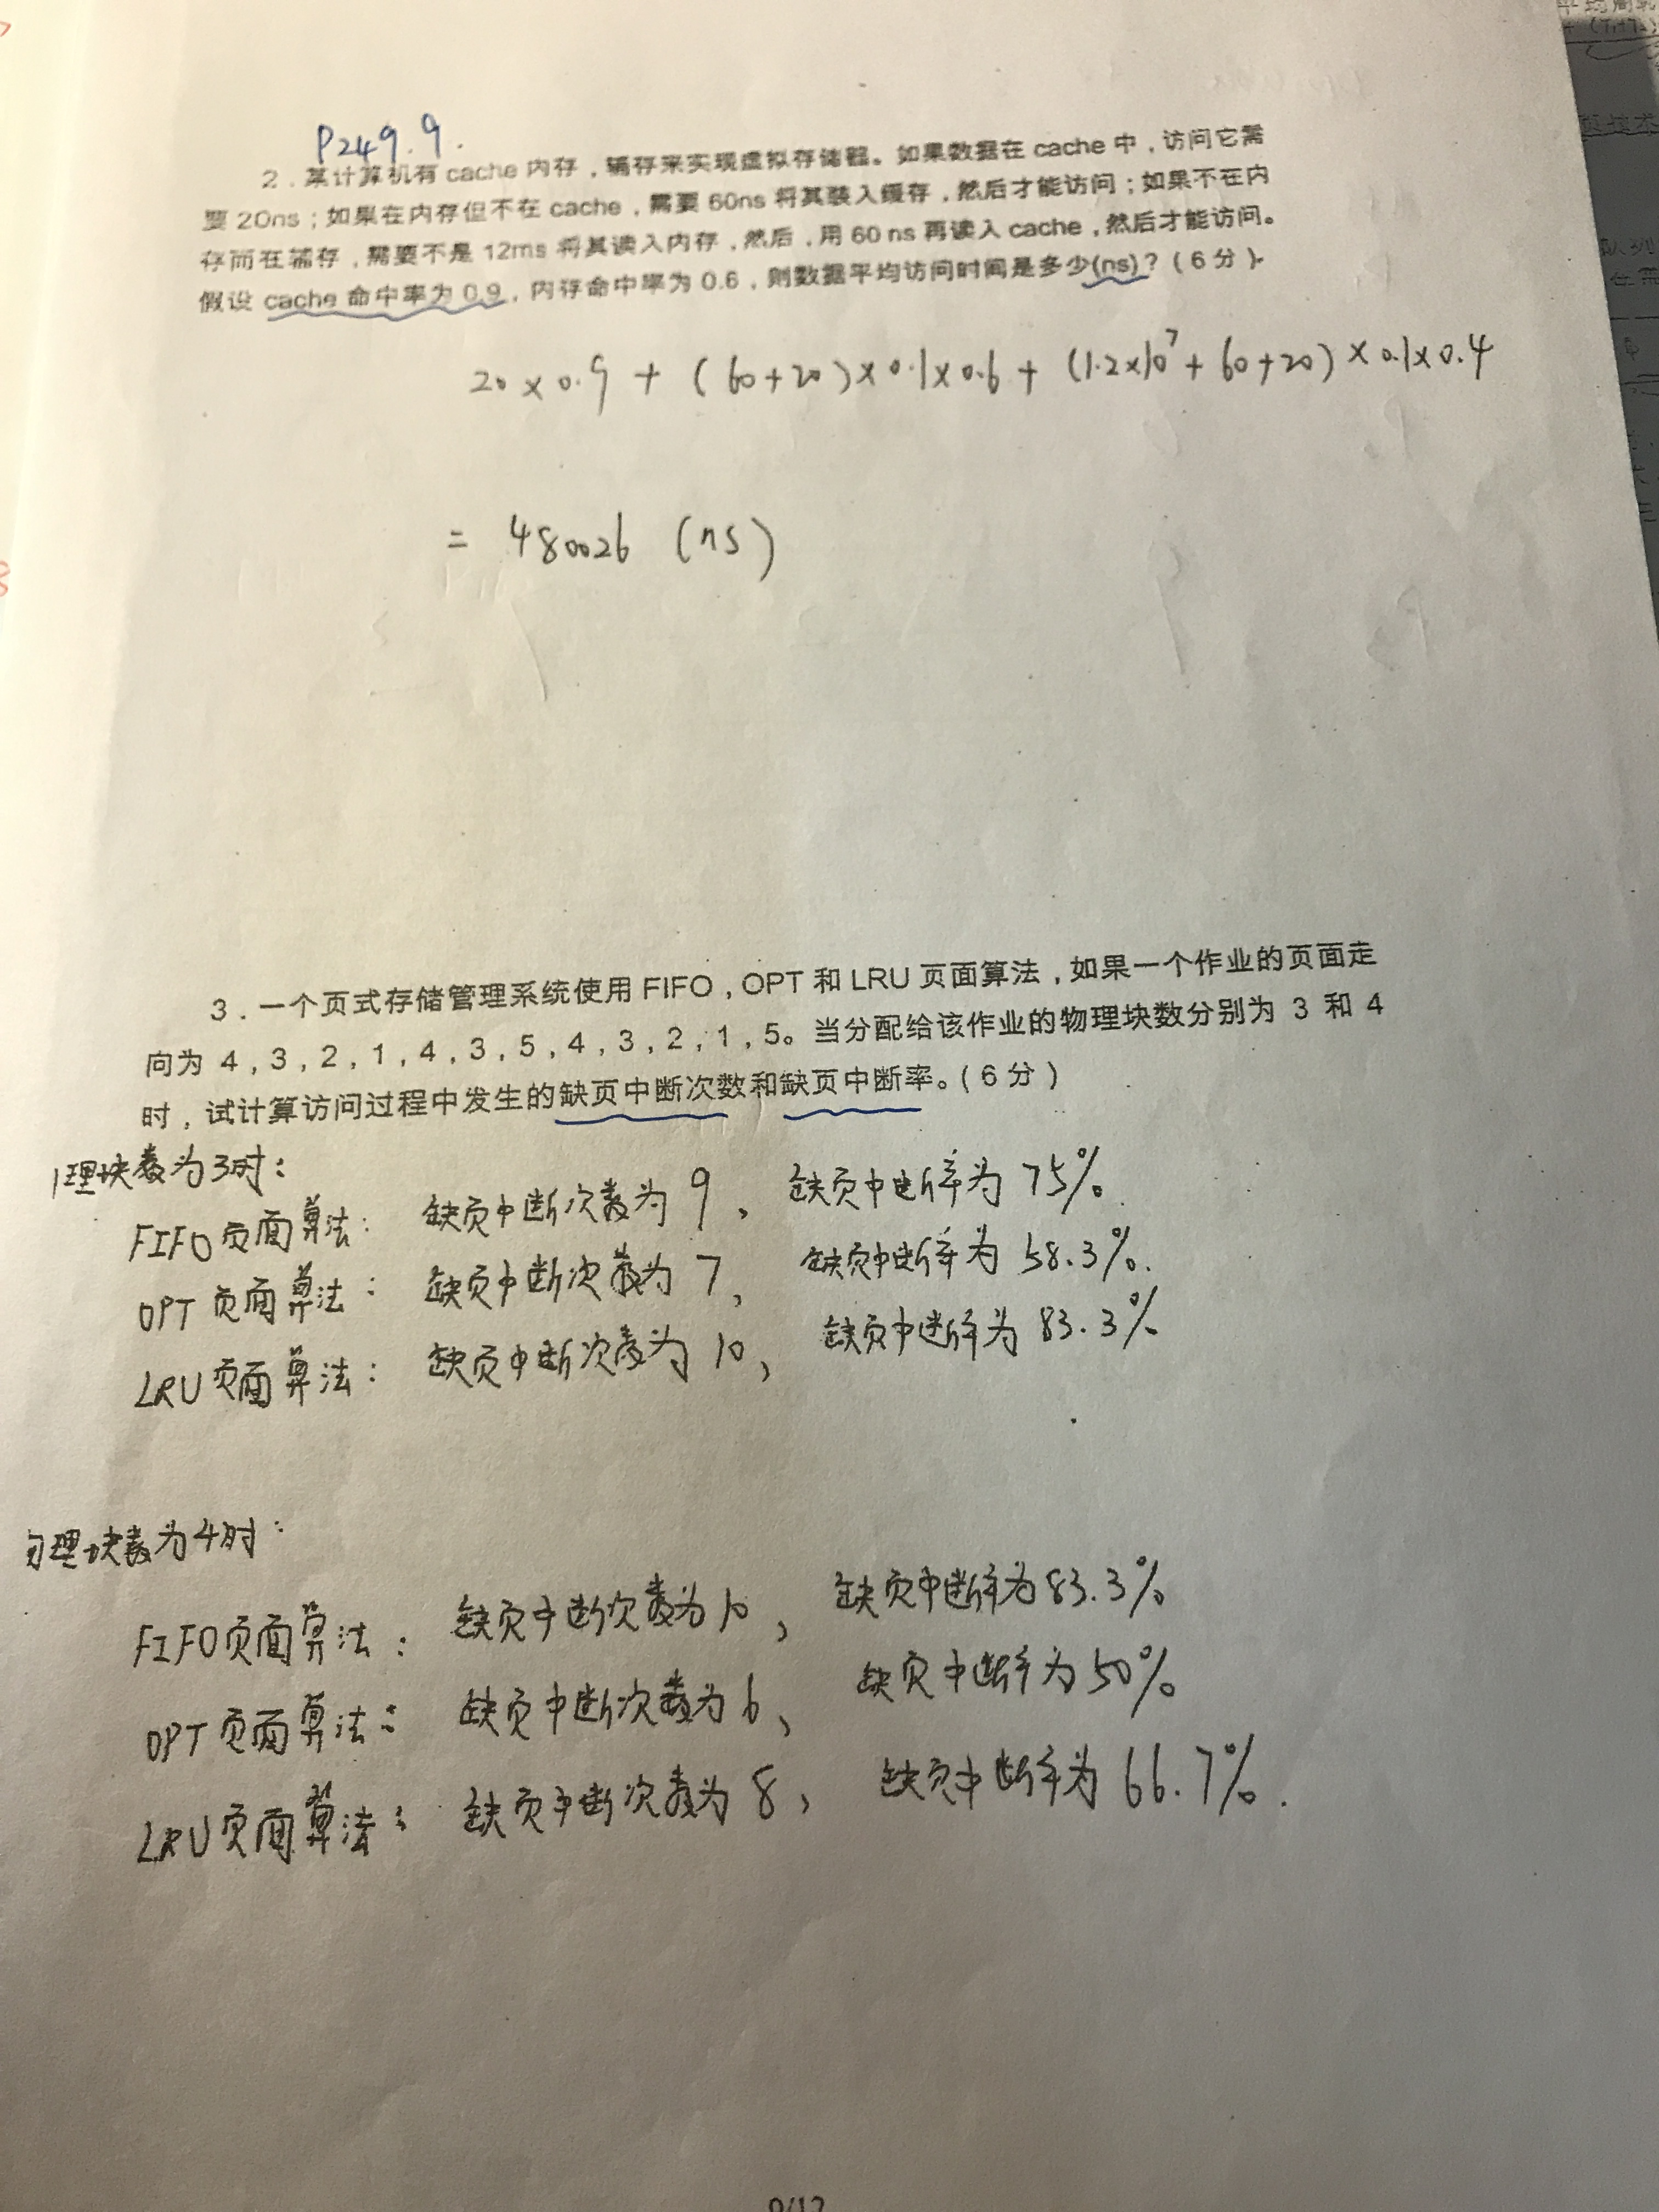 P249.9.
2．某计算机有 cache 内存，辅存来实现虚拟存储器。如果数据在 cache 中，访问它需
要 20ns；如果在内存但不在 cache，需要 60ns 将其装入缓存，然后才能访问；如果不在内
存而在辅存，需要不是 12ms 将其读入内存，然后，用 60 ns 再读入 cache，然后才能访问。
假设 cache 命中率为 0.9，内存命中率为 0.6，则数据平均访问时间是多少(ns)？（6 分）
20×0.9 + (60+20)×0.1×0.6 + (1.2×10⁷+60+20)×0.1×0.4
= 480026 (ns)
3．一个页式存储管理系统使用 FIFO，OPT 和 LRU 页面算法，如果一个作业的页面走
向为 4，3，2，1，4，3，5，4，3，2，1，5。当分配给该作业的物理块数分别为 3 和 4
时，试计算访问过程中发生的缺页中断次数和缺页中断率。（6 分）
理块数为3时：
FIFO页面算法： 缺页中断次数为 9， 缺页中断率为 75%.
OPT 页面算法： 缺页中断次数为 7， 缺页中断率为 58.3%.
LRU页面算法： 缺页中断次数为 10， 缺页中断率为 83.3%
理块数为4时：
FIFO页面算法： 缺页中断次数为10， 缺页中断率为83.3%
OPT 页面算法： 缺页中断次数为6， 缺页中断率为50%
LRU页面算法： 缺页中断次数为 8， 缺页中断率为 66.7%.
9/12